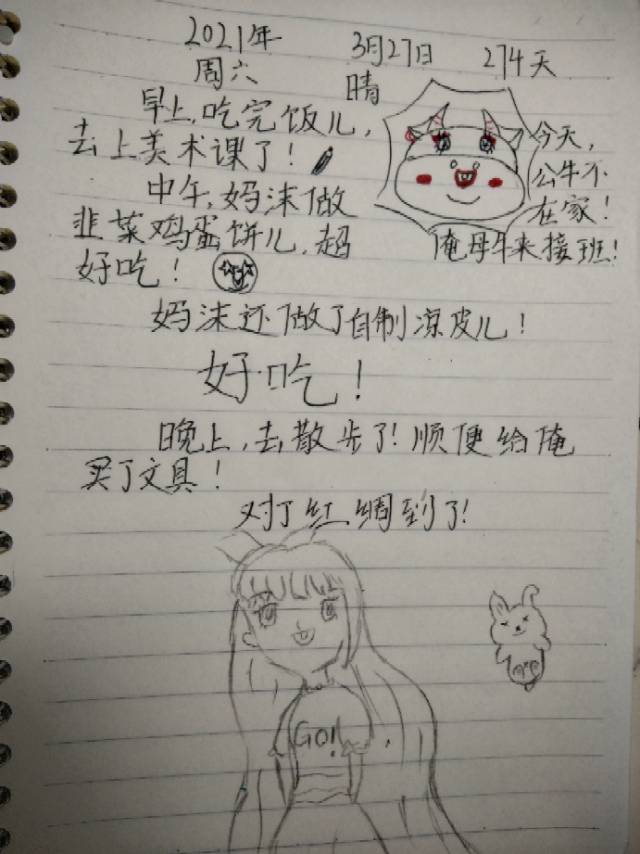 2021年 3月27日 274天
周六 晴
早上,吃完饭儿,
去上美术课了!
中午,妈沫做
韭菜鸡蛋饼儿,超
好吃!
今天,
公牛不
在家!
俺母牛来接班!
妈沫还做了自制凉皮儿!
好吃!
晚上,去散步了!顺便给俺
买了文具!
对了红绸到了!
GO!